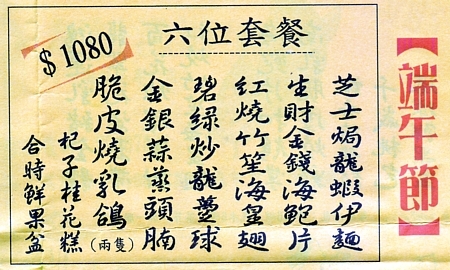 【端午節】
六位套餐
$1080
芝士焗龍蝦伊麵
生財金錢海鮑片
紅燒竹笙海皇翅
碧綠炒龍躉球
金銀蒜蒸頭腩
脆皮燒乳鴿(兩隻)
杞子桂花糕
合時鮮果盆